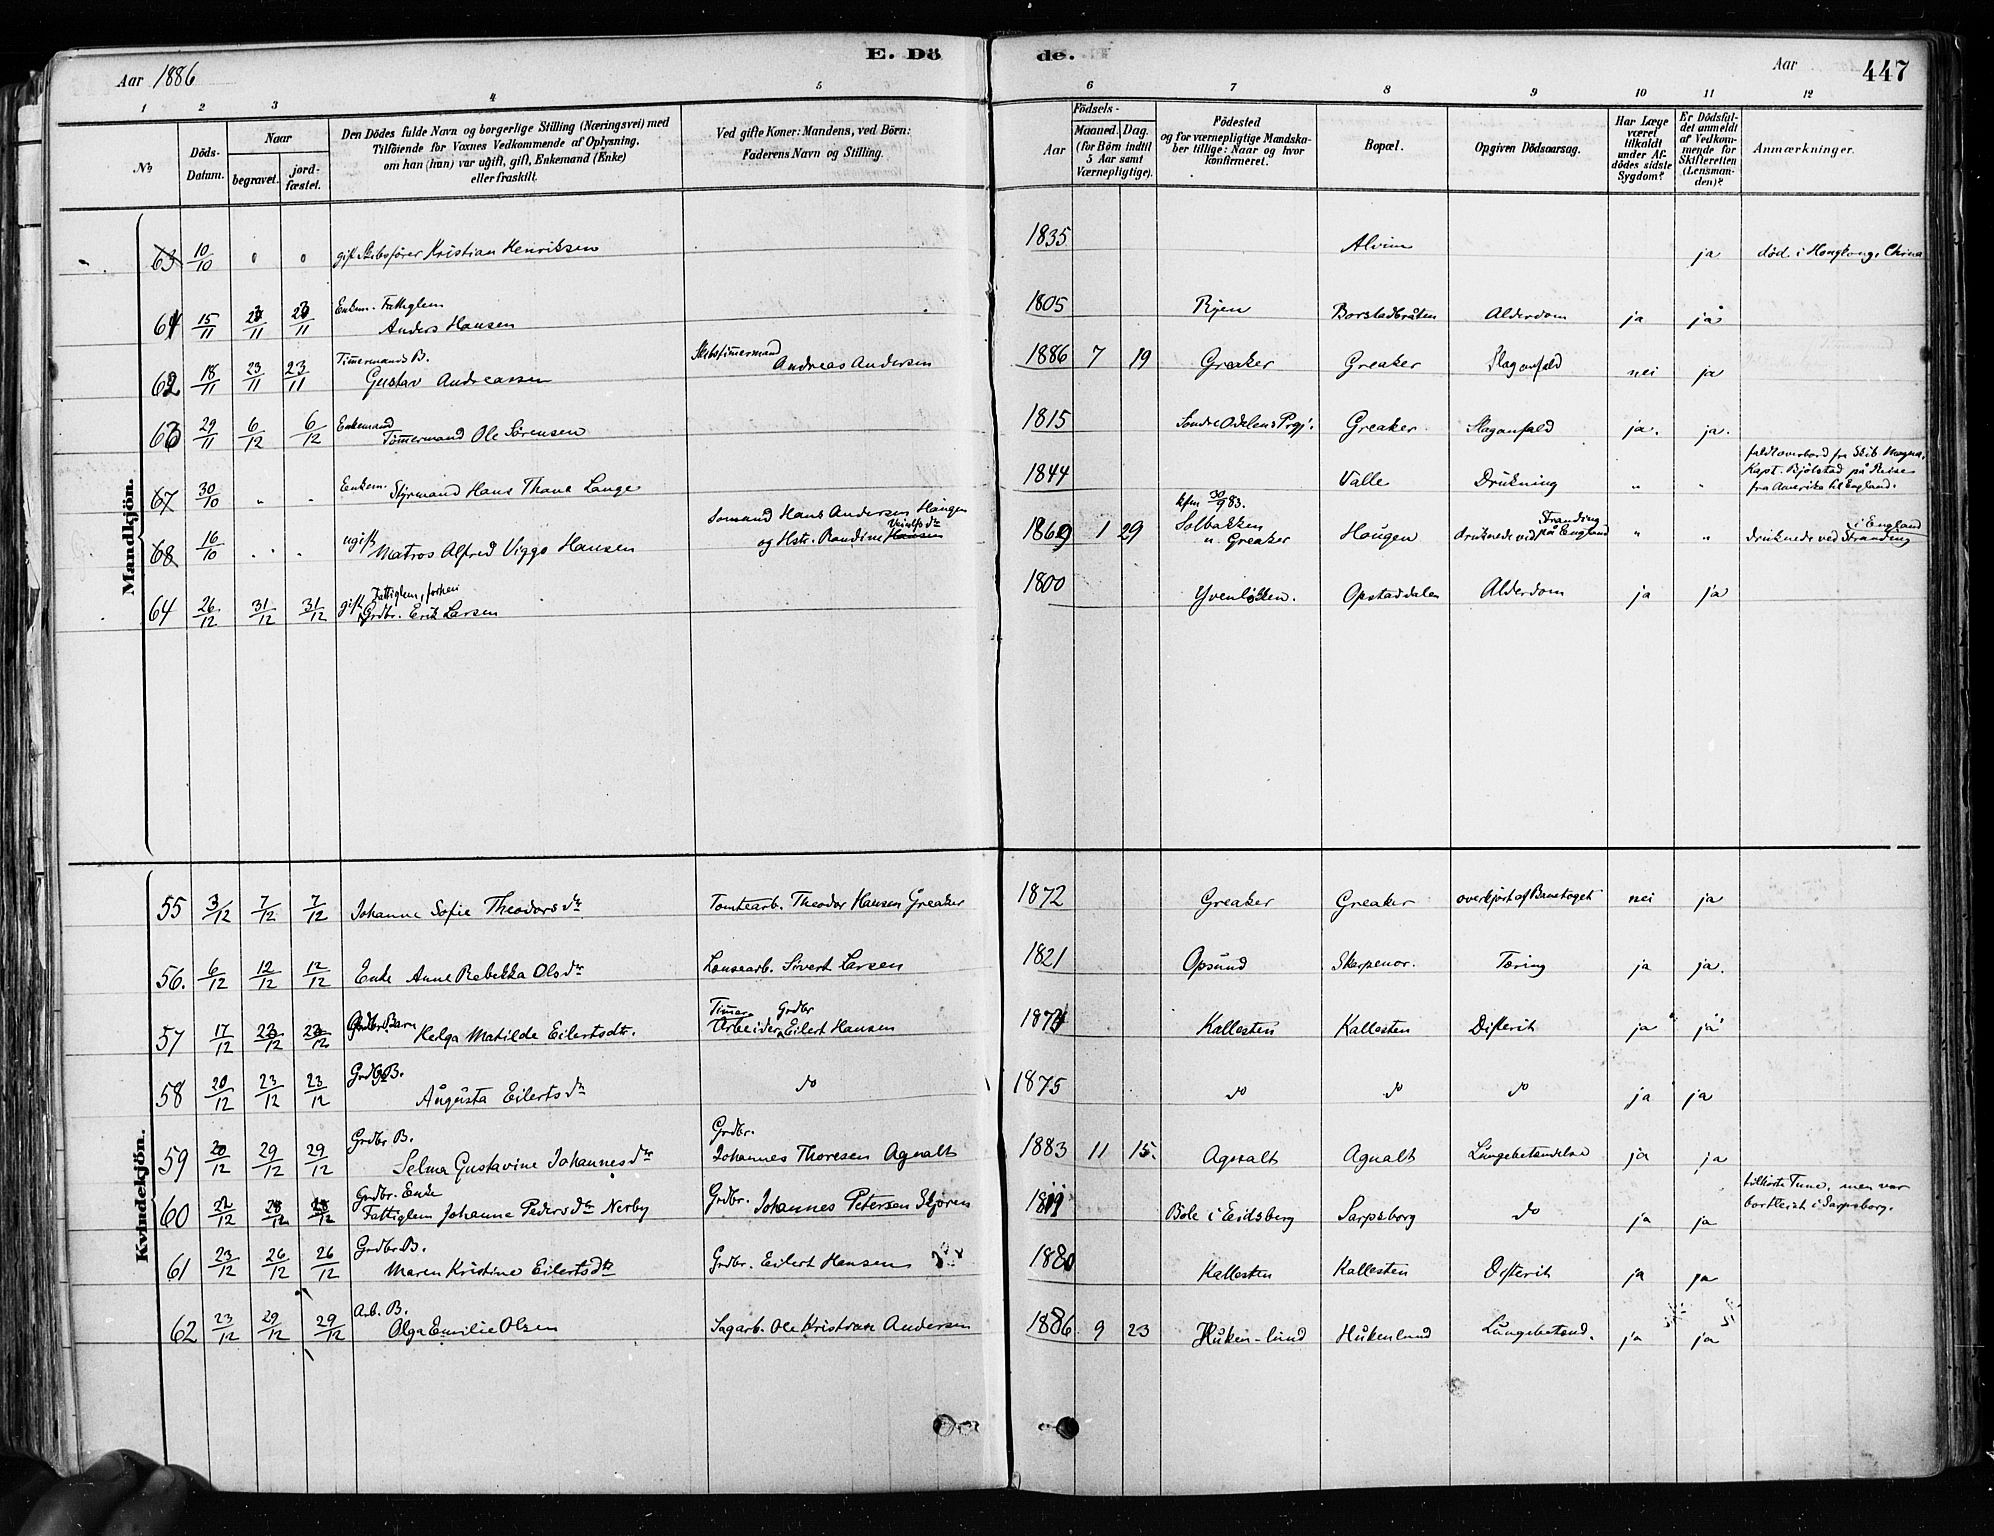 E. Dö de.
Aar 1886
Aar 447
1 2 3 4 5 6 7 8 9 10 11 12
No
Döds-Datum.
Naar
begravet.
jord-fæstet.
Den Dödes fulde Navn og borgerlige Stilling (Næringsvei) med
Tilföiende for Voxnes Vedkommende af Oplysning,
om han (hun) var ugift, gift, Enkemand (Enke)
eller fraskilt.
Ved gifte Koner: Mandens, ved Börn:
Faderens Navn og Stilling.
Aar
Födsels-
Maaned. Dag.
(for Börn indtil
5 Aar samt
Værnepligtige).
Födested
og for værnepligtige Mandska-
ber tillige: Naar og hvor
konfirmeret.
Bopæl.
Opgiven Dödsaarsag.
Har Læge
været
tilkaldt
under Af-
dödes sidste
Sygdom?
Er Dödsfal-
det anmeldt
af Vedkom-
mende for
Skifteretten
(Lensman-
den)?
Anmærkninger.
Mandkjön.
63 10/10 " " gift Skibsfører Kristian Henriksen 1835 Alvim ja død i Hongkong, China
61 15/11 23/11 23/11 Enkem. Fattiglem Anders Hansen 1805 Ryen Borstadbråten Alderdom ja ja
62 18/11 23/11 23/11 Timermands B. Gustav Andreassen Skibstimermand Andreas Andersen 1886 7 19 Greaker Greaker Slaganfald nei ja
63 29/11 6/12 6/12 Enkemand Timermand Ole Sørensen 1815 Søndre Odelens Prgj. Greaker Slaganfald ja. ja.
67 30/10 " " Enkem. Styrmand Hans Thane Lange 1844 Valle Drukning " " faldt overbord fra Skib Magna, Kapt. Bjølstad på Reise fra Amerika til England.
68 16/10 " " ugift Matros Alfred Viggo Hansen Sømand Hans Andersen Haugen og Hstr. Randine Hansen 1869 1 29 kfm 30/9 83. Solbakken u. Greaker Haugen druknede ved Stranding på England " " druknede ved Stranding i England
64 26/12 31/12 31/12 gift Fattiglem, forhen Grdbr. Erik Larsen 1800 Yvenløkken. Opstaddalen Alderdom ja ja
Kvindekjön.
55 3/12 7/12 7/12 Johanne Sofie Theodorsdtr Tomtearb. Theodor Hansen Greaker 1872 Greaker Greaker overkjørt af Banetoget nei ja
56. 6/12 12/12 12/12 Enke Anne Rebekka Olsdtr Lensearb. Sivert Larsen 1821 Opsund Skarpenor. Tæring ja ja.
57 17/12 23/12 23/12 Grdbr Barn Helga Matilde Eilertsdtr. Grdbr Arbeider Eilert Hansen 1874 Kallesten Kallesten Difterit ja ja
58 20/12 23/12 23/12 Grdbr B. Augusta Eilertsdtr do 1875 do do do ja ja
59 20/12 29/12 29/12 Grdbr B. Selma Gustavine Johannesdtr Grdbr. Johannes Thoresen Agnalt 1883 11 15. Agnalt Agnalt Lungebetændelse ja ja
60 22/12 28/12 28/12 Grdbr. Enke Fattiglem Johanne Pedersdtr Nerby Grdbr. Johannes Petersen Skjøren 1811 Bøle i Eidsberg Sarpsborg do ja ja tilhørte Tune, men var bortleiet i Sarpsborg.
61 23/12 26/12 26/12 Grdbr B. Maren Kristine Eilertsdtr Grdbr. Eilert Hansen 1880 Kallesten Kallesten Difterit ja ja
62 23/12 29/12 29/12 Arb. B. Olga Emilie Olsen Sagarb. Ole Kristian Andersen 1886 9 23 Huken-lund Hukenlund Lungebetænd. ja ja